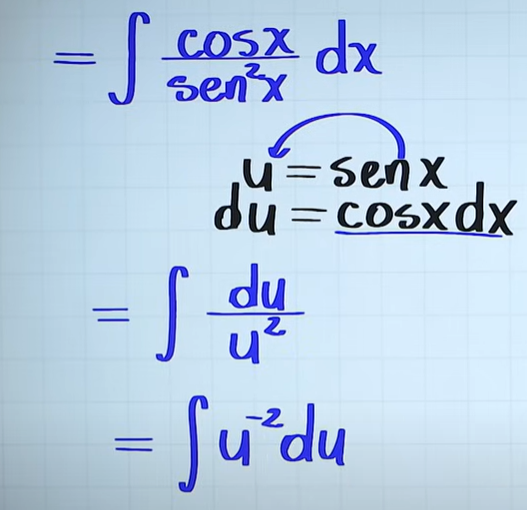 = ∫ cosx/sen²x dx
u = senx
du = cosxdx
= ∫ du/u²
= ∫ u⁻² du